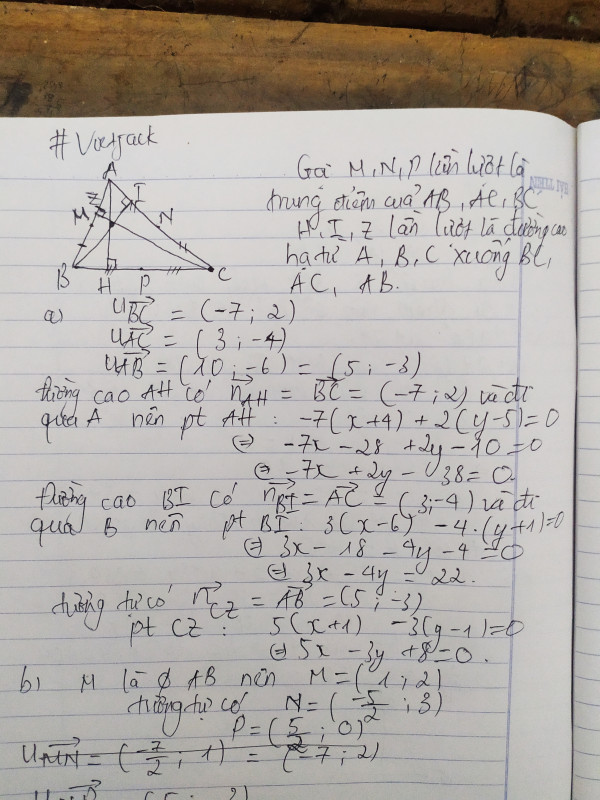 # Vietjack
A
Z
I
M
N
B
H
P
C
Gọi M, N, P lần lượt là
trung điểm của AB, AC, BC
H, I, Z lần lượt là đường cao
hạ từ A, B, C xuống BC,
AC, AB.
a) u_BC→ = (-7 ; 2)
u_AC→ = (3 ; -4)
u_AB→ = (10 ; -6) = (5 ; -3)
Đường cao AH có n_AH→ = BC→ = (-7 ; 2) và đi
qua A nên pt AH : -7(x+4) + 2(y-5) = 0
⇔ -7x - 28 + 2y - 10 = 0
⇔ -7x + 2y - 38 = 0
Đường cao BI có n_BI→ = AC→ = (3;-4) và đi
qua B nên pt BI : 3(x-6) - 4.(y+1)=0
⇔ 3x - 18 - 4y - 4 = 0
⇔ 3x - 4y = 22.
tương tự có n_CZ→ = AB→ = (5 ; -3)
pt CZ : 5(x+1) -3(y-1)=0
⇔ 5x - 3y + 8 = 0.
b) M là ∅ AB nên M = (1 ; 2)
tương tự có N = (-5/2 ; 3)
P = (5/2 ; 0)
u_MN→ = (-7/2 ; 1) = (-7 ; 2)